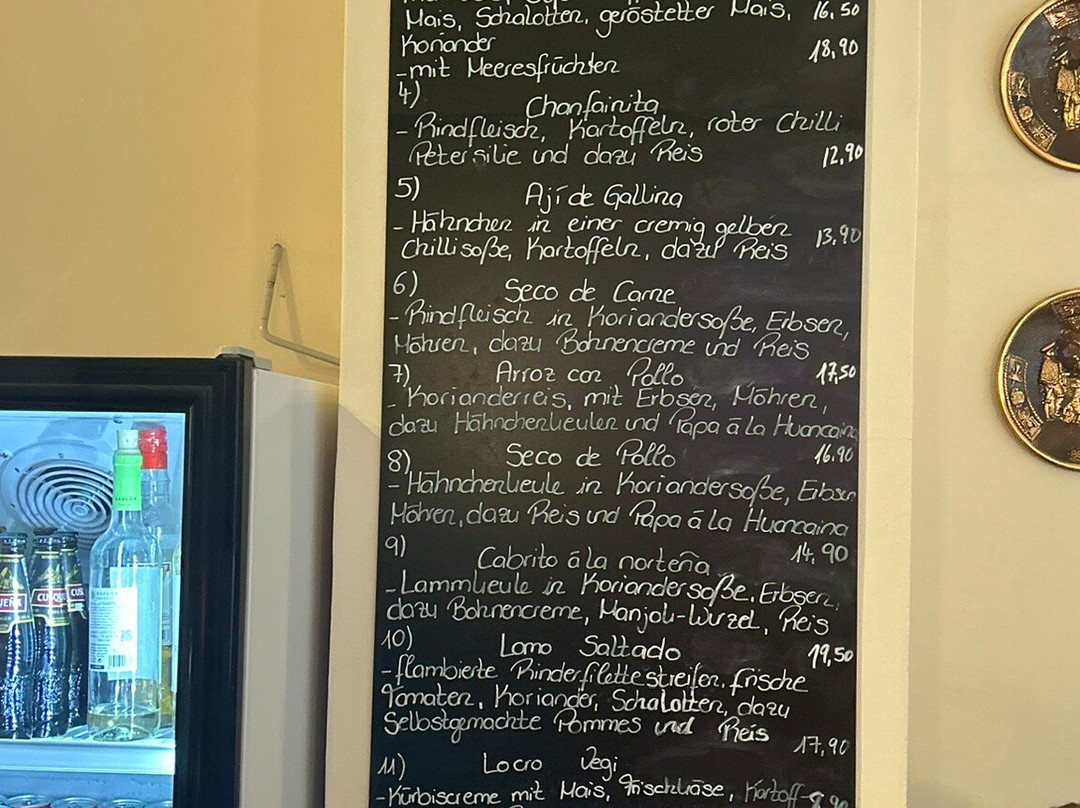 Mais, Schalotten, gerösteter Mais, 16,50
Koriander 18,90
-mit Meeresfrüchten
4) Chanfainita
- Rindfleisch, Kartoffeln, roter Chilli
Petersilie und dazu Reis 12,90
5) Ají de Gallina
- Hähnchen in einer cremig gelben 13,90
Chillisoße, Kartoffeln, dazu Reis
6) Seco de Carne
- Rindfleisch in Koriandersoße, Erbsen,
Möhren, dazu Bohnencreme und Reis
7) Arroz con Pollo 17,50
- Korianderreis, mit Erbsen, Möhren,
dazu Hähnchenkeulen und Papa á la Huancaina
8) Seco de Pollo 16.90
- Hähnchenkeule in Koriandersoße, Erbsen
Möhren, dazu Reis und Papa á la Huancaina
9) Cabrito á la norteña 14,90
- Lammkeule in Koriandersoße, Erbsen,
dazu Bohnencreme, Manjok-Wurzel, Reis
10) Lomo Saltado 19,50
- flambierte Rinderfilettestreifen, frische
Tomaten, Koriander, Schalotten, dazu
Selbstgemachte Pommes und Reis
17,90
11) Locro Vegi
- Kürbiscreme mit Mais, Frischkäse, Kartoff
CUSQU